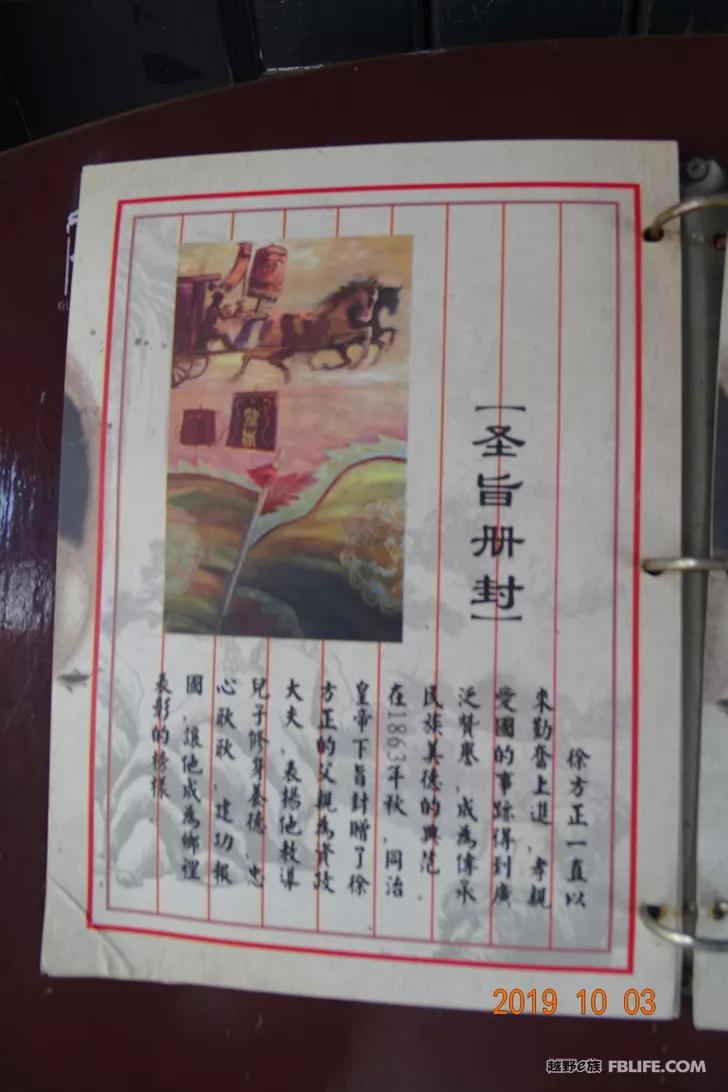 【圣旨册封】
徐方正一直以
來勤奮上進，孝親
愛國的事跡得到廣
泛贊譽，成為傳承
民族美德的典范。
在1863年秋，同治
皇帝下旨封贈了徐
方正的父親為資政
大夫，表揚他教導
兒子修身養德，忠
心耿耿，建功報
國，讓他成為鄉裡
表彰的榜樣
2019 10 03
越野e族 FBLIFE.COM